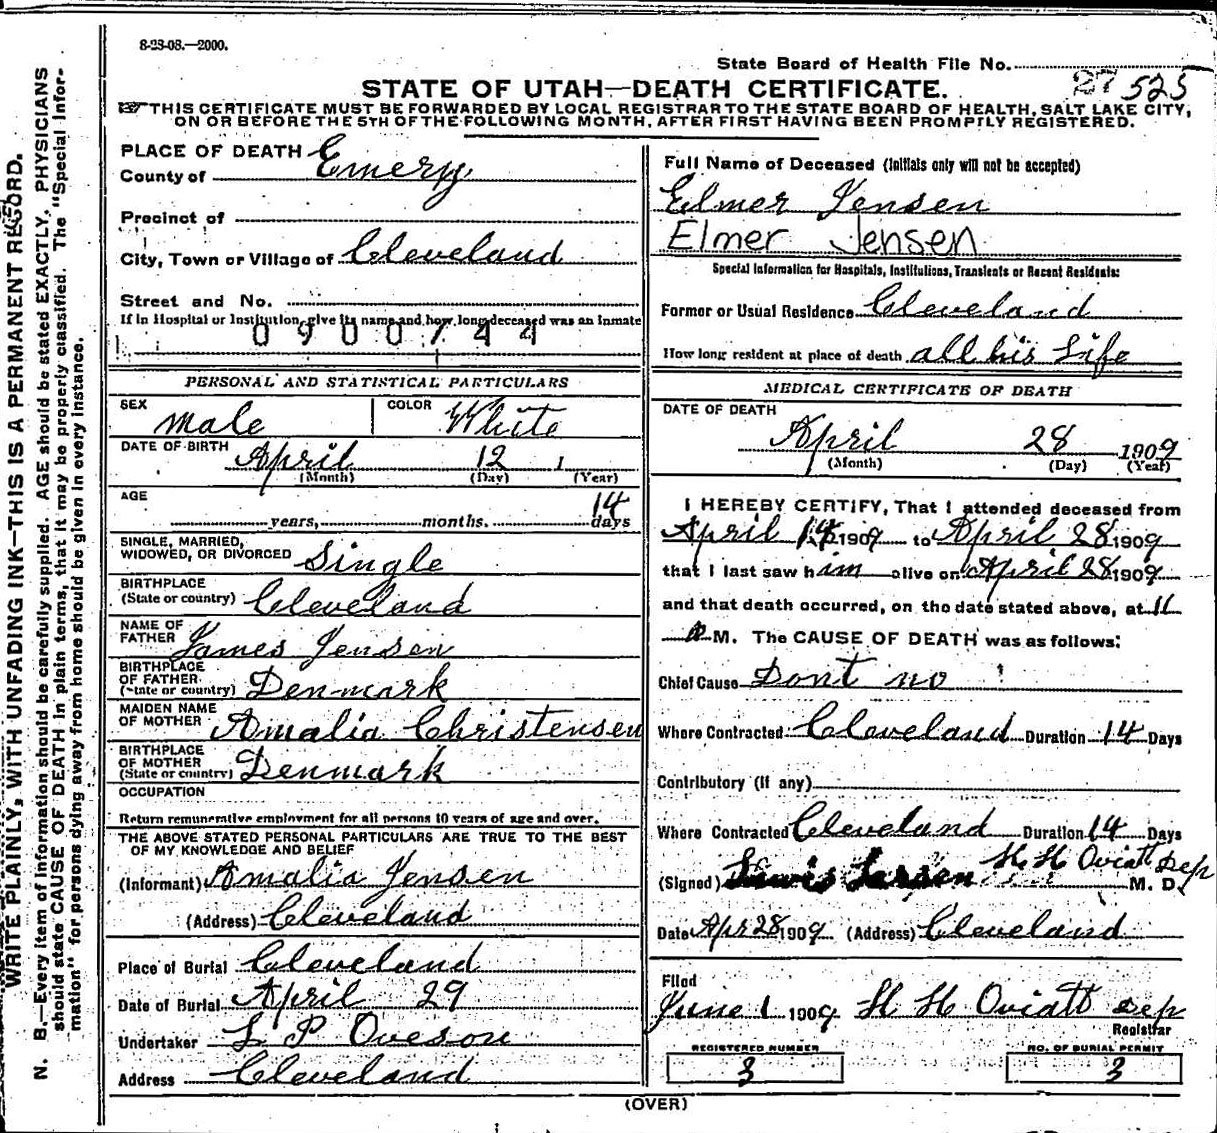 8-23-08.—2000.
State Board of Health File No. 27 525
STATE OF UTAH—DEATH CERTIFICATE.
THIS CERTIFICATE MUST BE FORWARDED BY LOCAL REGISTRAR TO THE STATE BOARD OF HEALTH, SALT LAKE CITY,
ON OR BEFORE THE 5TH OF THE FOLLOWING MONTH, AFTER FIRST HAVING BEEN PROMPTLY REGISTERED.
PLACE OF DEATH
County of Emery
Precinct of
City, Town or Village of Cleveland
Street and No.
If in Hospital or Institution, give its name and how long deceased was an inmate
0900744
PERSONAL AND STATISTICAL PARTICULARS
SEX male COLOR White
DATE OF BIRTH April 12 1
(Month) (Day) (Year)
AGE 14
years, months. days
SINGLE, MARRIED,
WIDOWED, OR DIVORCED Single
BIRTHPLACE
(State or country) Cleveland
NAME OF
FATHER James Jensen
BIRTHPLACE
OF FATHER
(State or country) Denmark
MAIDEN NAME
OF MOTHER Amalia Christensen
BIRTHPLACE
OF MOTHER
(State or country) Denmark
OCCUPATION
Return remunerative employment for all persons 10 years of age and over.
THE ABOVE STATED PERSONAL PARTICULARS ARE TRUE TO THE BEST
OF MY KNOWLEDGE AND BELIEF
(Informant) Amalia Jensen
(Address) Cleveland
Place of Burial Cleveland
Date of Burial April 29
Undertaker L P Oveson
Address Cleveland
Full Name of Deceased (Initials only will not be accepted)
Elmer Jensen
Elmer Jensen
Special Information for Hospitals, Institutions, Transients or Recent Residents:
Former or Usual Residence Cleveland
How long resident at place of death all his Life
MEDICAL CERTIFICATE OF DEATH
DATE OF DEATH
April 28 1909
(Month) (Day) (Year)
I HEREBY CERTIFY, That I attended deceased from
April 14 1909 to April 28 1909
that I last saw him alive on April 28 1909
and that death occurred, on the date stated above, at 11
a M. The CAUSE OF DEATH was as follows:
Chief Cause Dont no
Where Contracted Cleveland Duration 14 Days
Contributory (if any)
Where Contracted Cleveland Duration 14 Days
(Signed) Lewis Larsen H H Oviatt Dep M. D.
Date Apr 28 1909 (Address) Cleveland
Filed
June 1 1909 H H Oviatt Dep
Registrar
REGISTERED NUMBER
3
NO. OF BURIAL PERMIT
3
(OVER)
WRITE PLAINLY, WITH UNFADING INK—THIS IS A PERMANENT RECORD.
N. B.—Every item of information should be carefully supplied. AGE should be stated EXACTLY. PHYSICIANS
should state CAUSE OF DEATH in plain terms, that it may be properly classified. The "Special Infor-
mation" for persons dying away from home should be given in every instance.